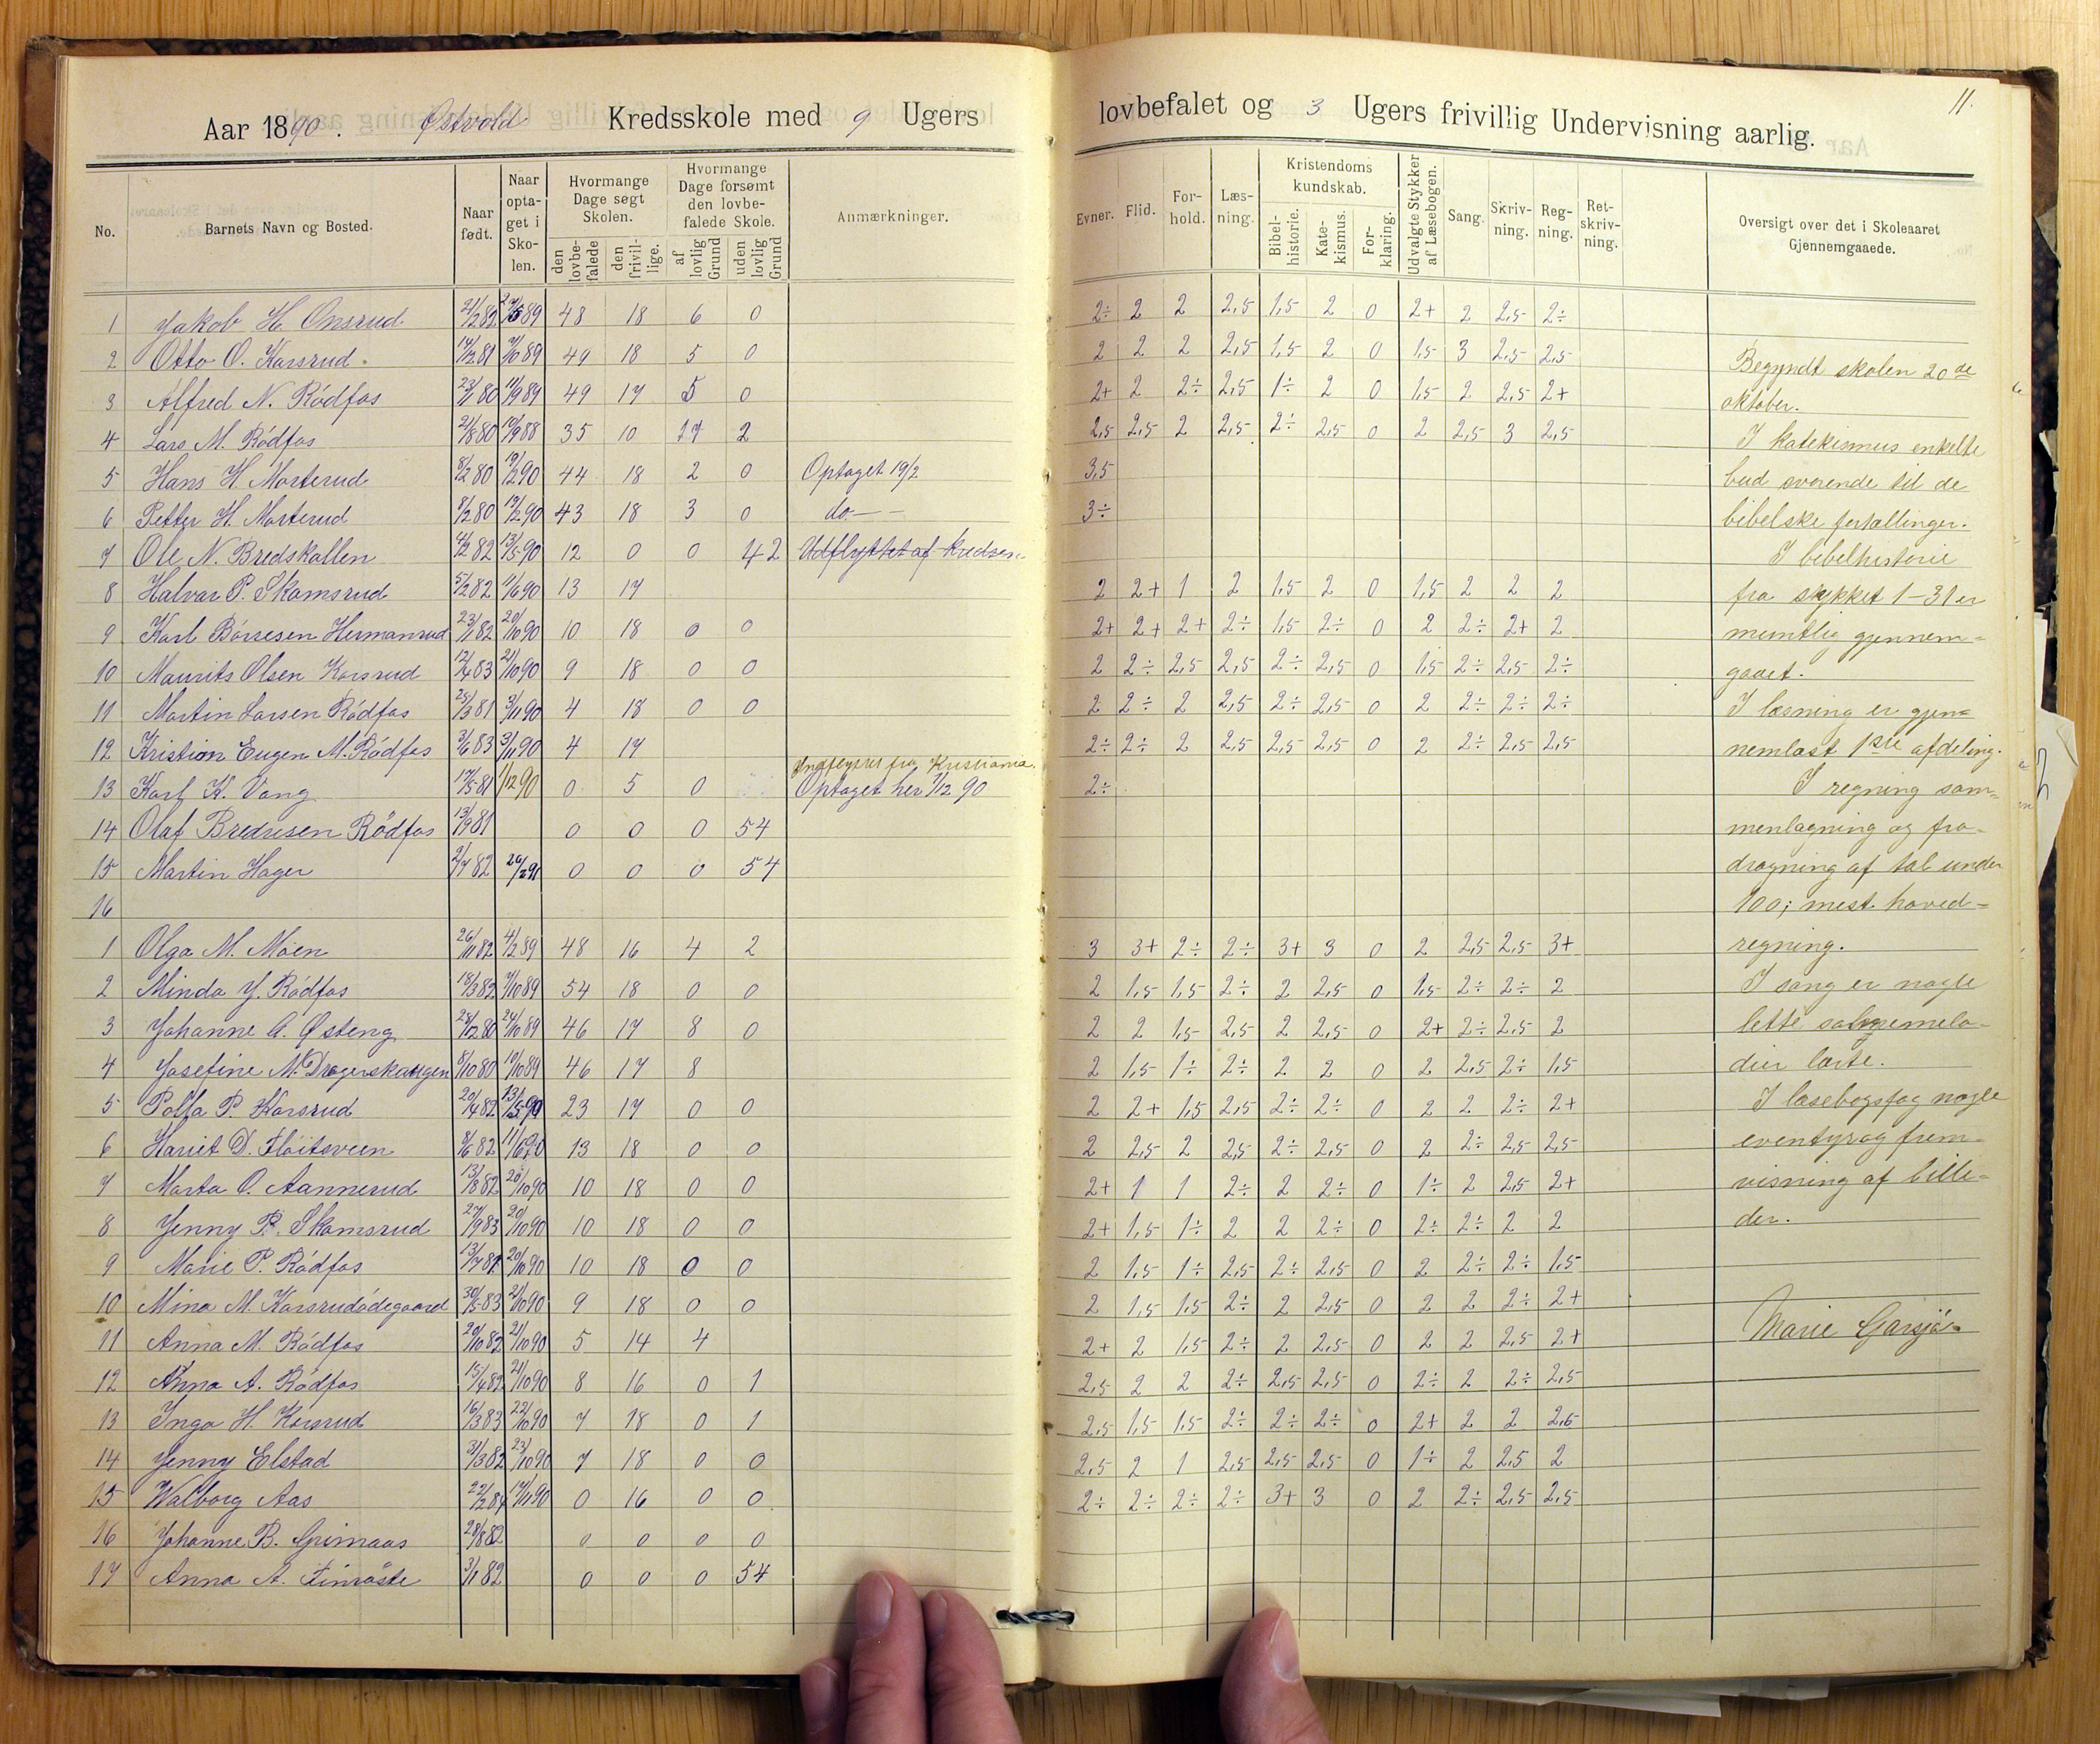 Aar 1890. Østvold Kredsskole med 9 Ugers
No. Barnets Navn og Bosted. Naar født. Naar optaget i Skolen. Hvormange Dage søgt Skolen. den lovbefalede den frivillige. Hvormange Dage forsømt den lovbefalede Skole. af lovlig Grund uden lovlig Grund Anmærkninger.
1 Jakob H. Onsrud 21/2 82 89 48 18 6 0
2 Otto O. Korsrud. 14/2 81 7/10 89 49 18 5 0
3 Alfred N. Rödfos 23/1 80 11/9 89 49 17 5 0
4 Lars M. Rödfos 21/8 80 19/9 88 35 10 17 2
5 Hans H. Morterud 8/2 80 19/2 90 44 18 2 0 Optaget 19/2
6 Petter H. Morterud 8/2 80 19/2 90 43 18 3 0 do. — -
7 Ole N. Bredskallen 4/2 82 13/5 90 12 0 0 42 Udflyttet af kredsen.
8 Halvar P. Skomsrud 5/2 82 11/6 90 13 17
9 Karl Börresen Hermanrud 23/1 82 20/10 90 10 18 0 0
10 Maurits Olsen Korsrud 12/4 83 21/10 90 9 18 0 0
11 Martin Larsen Rödfos 25/3 81 3/11 90 4 18 0 0
12 Kristian Eugen M. Rödfos 3/6 83 3/11 90 4 17
Indflyttet fra Kristiania.
13 Karl K. Vang 17/5 81 1/12 90 0 5 0 Optaget her 1/12 90
14 Olaf Bredesen Rödfos 13/9 81 0 0 0 54
15 Martin Hager 2/7 82 26/2 91 0 0 0 54
16
1 Olga M. Moen 26/11 82 4/2 89 48 16 4 2
2 Minda J. Rödfos 18/3 82 7/10 89 54 18 0 0
3 Johanne A. Østeng 28/12 80 24/10 89 46 17 8 0
4 Josefine N. Drogerskaugen 8/10 80 10/10 89 46 17 8
5 Polla P. Korsrud 20/4 82 13/5 90 23 17 0 0
6 Hariet D. Flöitsveen 8/6 82 11/6 90 13 18 0 0
7 Marta O. Aannerud 13/8 82 20/10 90 10 18 0 0
8 Jenny P. Skomsrud 27/9 83 20/10 90 10 18 0 0
9 Marie P. Rödfos 13/7 81 20/10 90 10 18 0 0
10 Mina M. Korsrudödegaard 30/5 83 21/10 90 9 18 0 0
11 Anna M. Rödfos 20/10 82 21/10 90 5 14 4
12 Anna A. Rödfos 15/4 82 21/10 90 8 16 0 1
13 Inga H. Korsrud 16/3 83 22/10 90 7 18 0 1
14 Jenny Elstad 31/3 82 23/10 90 7 18 0 0
15 Walborg Aas 22/2 84 17/11 90 0 16 0 0
16 Johanne B. Grimaas 28/8 82 0 0 0 0
17 Anna A. Finröste 3/1 82 0 0 0 54
lovbefalet og 3 Ugers frivillig Undervisning aarlig.
11.
Evner. Flid. Forhold. Læsning. Kristendoms kundskab. Bibelhistorie. Katekismus. Forklaring. Udvalgte Stykker af Læsebogen. Sang. Skrivning. Regning. Retskrivning. Oversigt over det i Skoleaaret Gjennemgaaede.
2÷ 2 2 2,5 1,5 2 0 2+ 2 2,5 2÷
2 2 2 2,5 1,5 2 0 1,5 3 2,5 2,5 Begyndt skolen 20de
2+ 2 2÷ 2,5 1÷ 2 0 1,5 2 2,5 2+ oktober.
2,5 2,5 2 2,5 2÷ 2,5 0 2 2,5 3 2,5 I katekismus enkelte
3,5 bud svarende til de
3÷ bibelske fortællinger.
I bibelhistorie
2 2+ 1 2 1,5 2 0 1,5 2 2 2 fra stykket 1-31 er
2+ 2+ 2+ 2÷ 1,5 2÷ 0 2 2÷ 2+ 2 muntlig gjennem=
2 2÷ 2,5 2,5 2÷ 2,5 0 1,5 2÷ 2,5 2÷ gaaet.
2 2÷ 2 2,5 2÷ 2,5 0 2 2÷ 2÷ 2÷ I læsning er gjen=
2÷ 2÷ 2 2,5 2,5 2,5 0 2 2÷ 2,5 2,5 nemlæst 1ste afdeling.
2÷ I regning sam=
menlægning og fra-
dragning af tal under
100; mest hoved=
3 3+ 2÷ 2÷ 3+ 3 0 2 2,5 2,5 3+ regning.
2 1,5 1,5 2÷ 2 2,5 0 1,5 2÷ 2÷ 2 I sang er nogle
2 2 1,5 2,5 2 2,5 0 2+ 2÷ 2,5 2 lette salmemelo-
2 1,5 1÷ 2÷ 2 2 0 2 2,5 2÷ 1,5 dier lærte.
2 2+ 1,5 2,5 2÷ 2÷ 0 2 2 2÷ 2+ I læsebogsfag nogle
2 2,5 2 2,5 2÷ 2,5 0 2 2÷ 2,5 2,5 eventyr og frem-
2+ 1 1 2÷ 2 2÷ 0 1÷ 2 2,5 2+ visning af bille=
2+ 1,5 1÷ 2 2 2÷ 0 2÷ 2÷ 2 2 der.
2 1,5 1÷ 2,5 2÷ 2,5 0 2 2÷ 2÷ 1,5
2 1,5 1,5 2÷ 2 2,5 0 2 2 2÷ 2+
2+ 2 1,5 2÷ 2 2,5 0 2 2 2,5 2+ Marie Garsjö
2,5 2 2 2÷ 2,5 2,5 0 2÷ 2 2÷ 2,5
2,5 1,5 1,5 2÷ 2÷ 2÷ 0 2+ 2 2 2,5
2,5 2 1 2,5 2,5 2,5 0 1÷ 2 2,5 2
2÷ 2÷ 2÷ 2÷ 3+ 3 0 2 2÷ 2,5 2,5